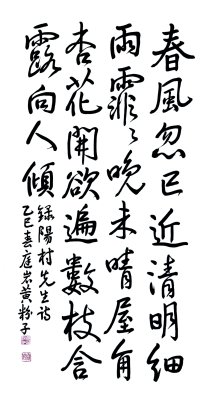 春風忽已近清明細
雨霏〻晚未晴屋角
杏花開欲遍數枝含
露向人傾
錄陽村先生詩
乙巳春庭岩黃粉子